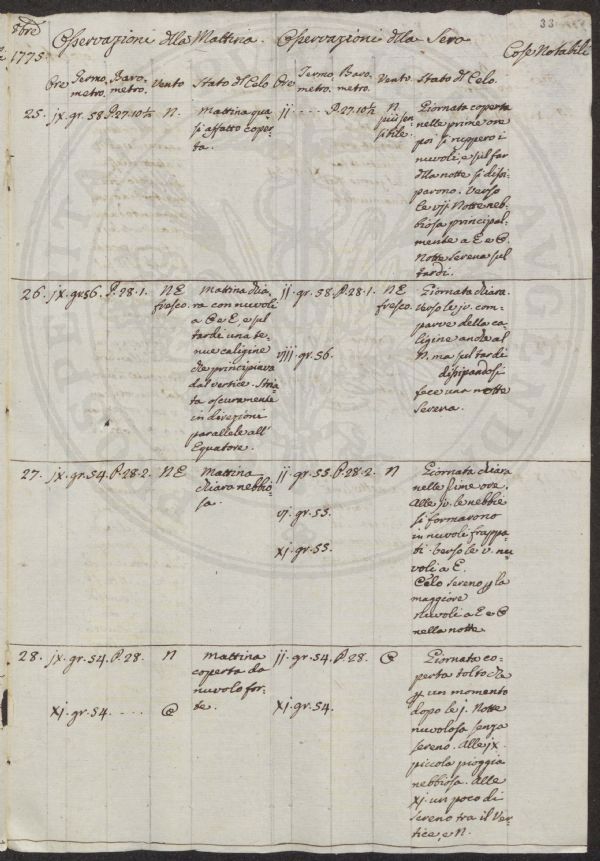 8bre
1775
33
Osservazioni della Mattina.
Osservazioni della Sera
Cose Notabili
Ore Termo- Baro- Vento Stato del Celo Ore Termo- Baro- Vento Stato del Celo.
metro. metro. metro. metro.
25. jx. gr. 58 P. 27. 10 1/2 N.
Mattina qua-
si affatto coper-
ta.
ij - - - - P. 27. 10 1/2 N
più sen-
sibile.
Giornata coperta
nelle prime ore
poi si ruppero i
nuvoli, e sul far
della notte si dissi-
parono. Verso
le vij. Notte neb-
biosa principal-
mente a E e O.
Notte serena sul
tardi.
26. jx. gr. 56. P. 28. 1. NE
fresco.
Mattina chia-
ra con nuvoli
a O e E, e sul
tardi una te-
nue caligine
che principiava
dal vertice. Stria-
ta oscuramente
in direzioni
parallele all'
Equatore.
ij. gr. 58. P. 28. 1. NE
fresco.
viij gr. 56.
Giornata chiara.
Verso le iv. com-
parve della ca-
ligine anche al
N. ma sul tardi
dissipandosi
fece una notte
Serena.
27. jx. gr. 54. P. 28. 2. NE
Mattina
chiara nebbio-
sa.
ij. gr. 55. P. 28. 2. N
vj. gr. 55.
xj. gr. 55.
Giornata chiara
nelle prime ore.
Alle iv. le nebbie
si formarono
in nuvoli frappa-
ti. Verso le v. nu-
voli a E.
Celo sereno p la
maggiore
nuvoli a E e O
nella notte.
28. jx. gr. 54. P. 28. N
Mattina
coperta da
nuvolo for-
te.
xj. gr. 54. - - - - O
ij. gr. 54. P. 28. O
xj. gr. 54.
Giornata co-
perta toltoche
p un momento
dopo le j. Notte
nuvolosa senza
sereno. Alle jx.
piccola pioggia
nebbiosa. Alle
xj. un poco di
sereno tra il Ver-
tice, e N.